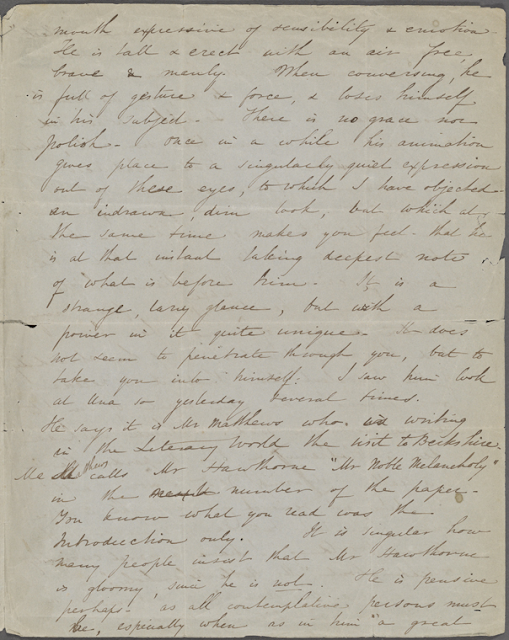 mouth expressive of sensibility & emotion -
He is tall & erect with an air free
brave & manly. When conversing, he
is full of gesture & force, & loses himself
in his subject - There is no grace nor
polish - Once in a while his animation
gives place to a singularly quiet expression
out of these eyes, to which I have objected -
an indrawn, dim look, but which at
the same time makes you feel - that he
is at that instant taking deepest note
of what is before him - It is a
strange, lazy glance, but with a
power in it quite unique - It does
not seem to penetrate through you, but to
take you into himself. I saw him look
at Una so yesterday several times.
He says it is Mr Matthews who is writing
in the Literary World the visit to Berkshire.
Mr Mathews calls Mr Hawthorne "Mr Noble Melancholy"
in the number of the paper -
You know what you read was the
Introduction only. It is singular how
many people insist that Mr Hawthorne
is gloomy, since he is not. He is pensive
perhaps - as all contemplative persons must
be, especially when as in him "a great